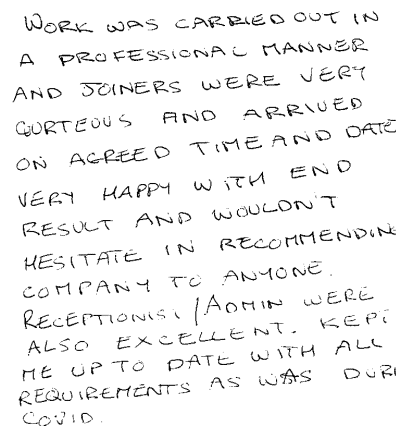 WORK WAS CARRIED OUT IN
A PROFESSIONAL MANNER
AND JOINERS WERE VERY
CURTEOUS AND ARRIVED
ON AGREED TIME AND DATE
VERY HAPPY WITH END
RESULT AND WOULDN'T
HESITATE IN RECOMMENDING
COMPANY TO ANYONE.
RECEPTIONIST/ADMIN WERE
ALSO EXCELLENT. KEPT
ME UP TO DATE WITH ALL
REQUIREMENTS AS WAS DURI
COVID.